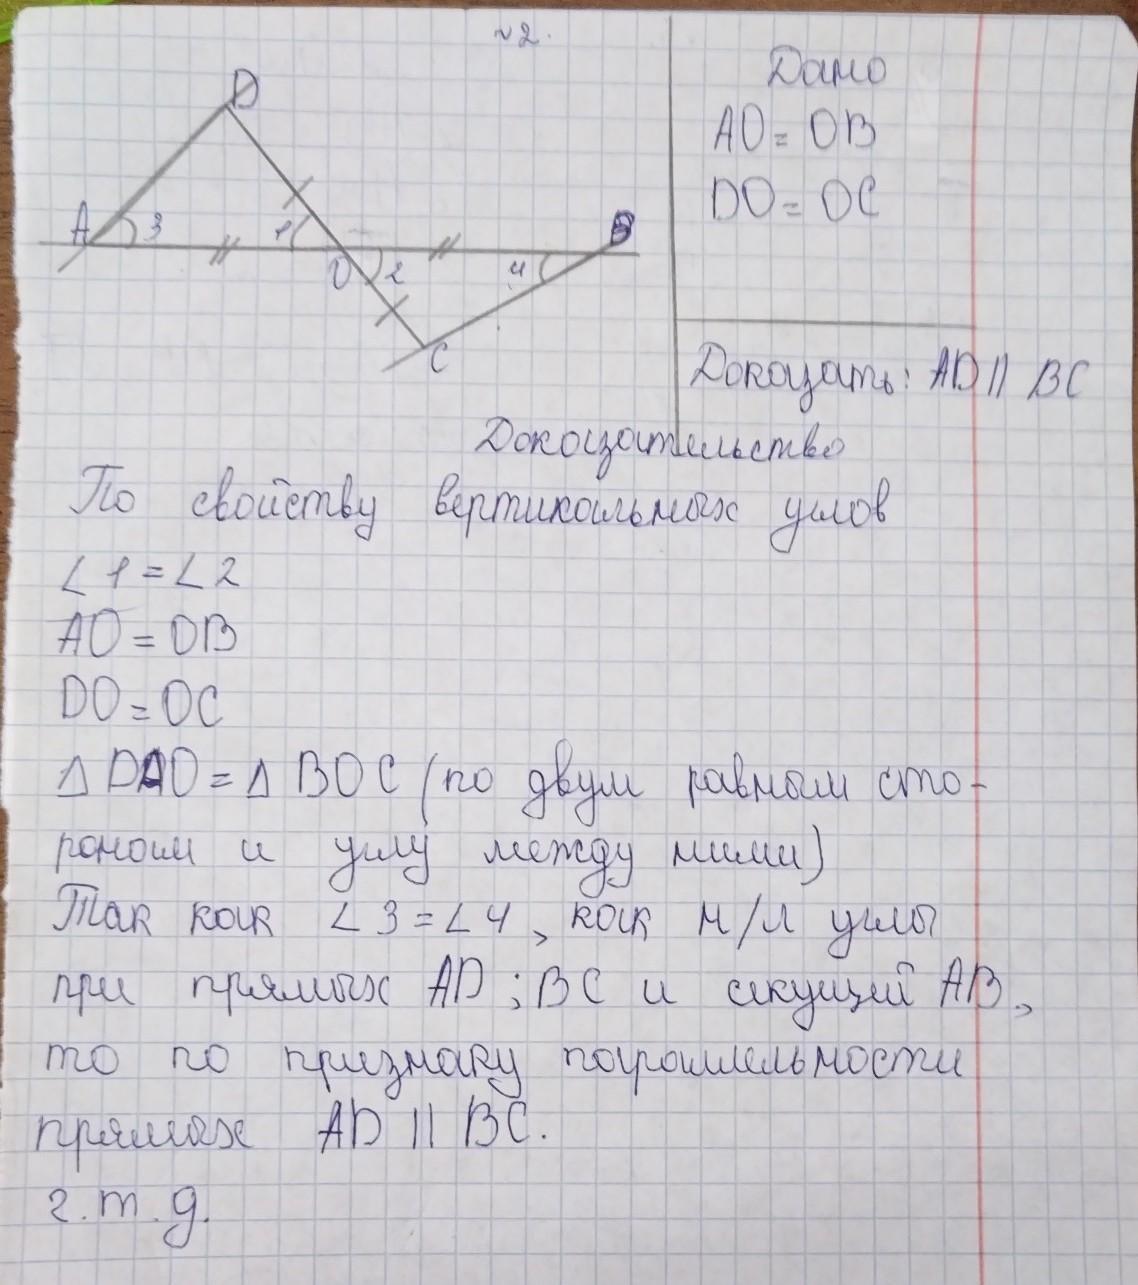 №2.
D
A 3 1 O 2 4 B
C
Дано
AO = OB
DO = OC
Доказать: AD || BC
Доказательство
По свойству вертикальных углов
∠1 = ∠2
AO = OB
DO = OC
Δ DAO = Δ BOC (по двум равным сто-
ронам и углу между ними)
Так как ∠3 = ∠4, как н/л углы
при прямых AD ; BC и секущей AB,
то по признаку параллельности
прямых AD || BC.
г.т.д.